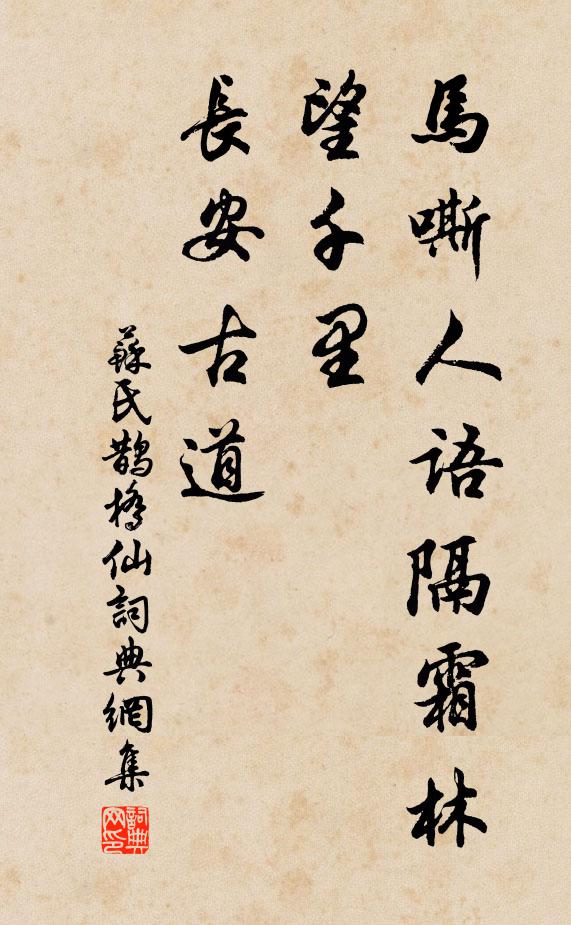 馬嘶人語隔霜林
望千里
長安古道
蘇氏鵲橋仙詞典網集
詞典網印